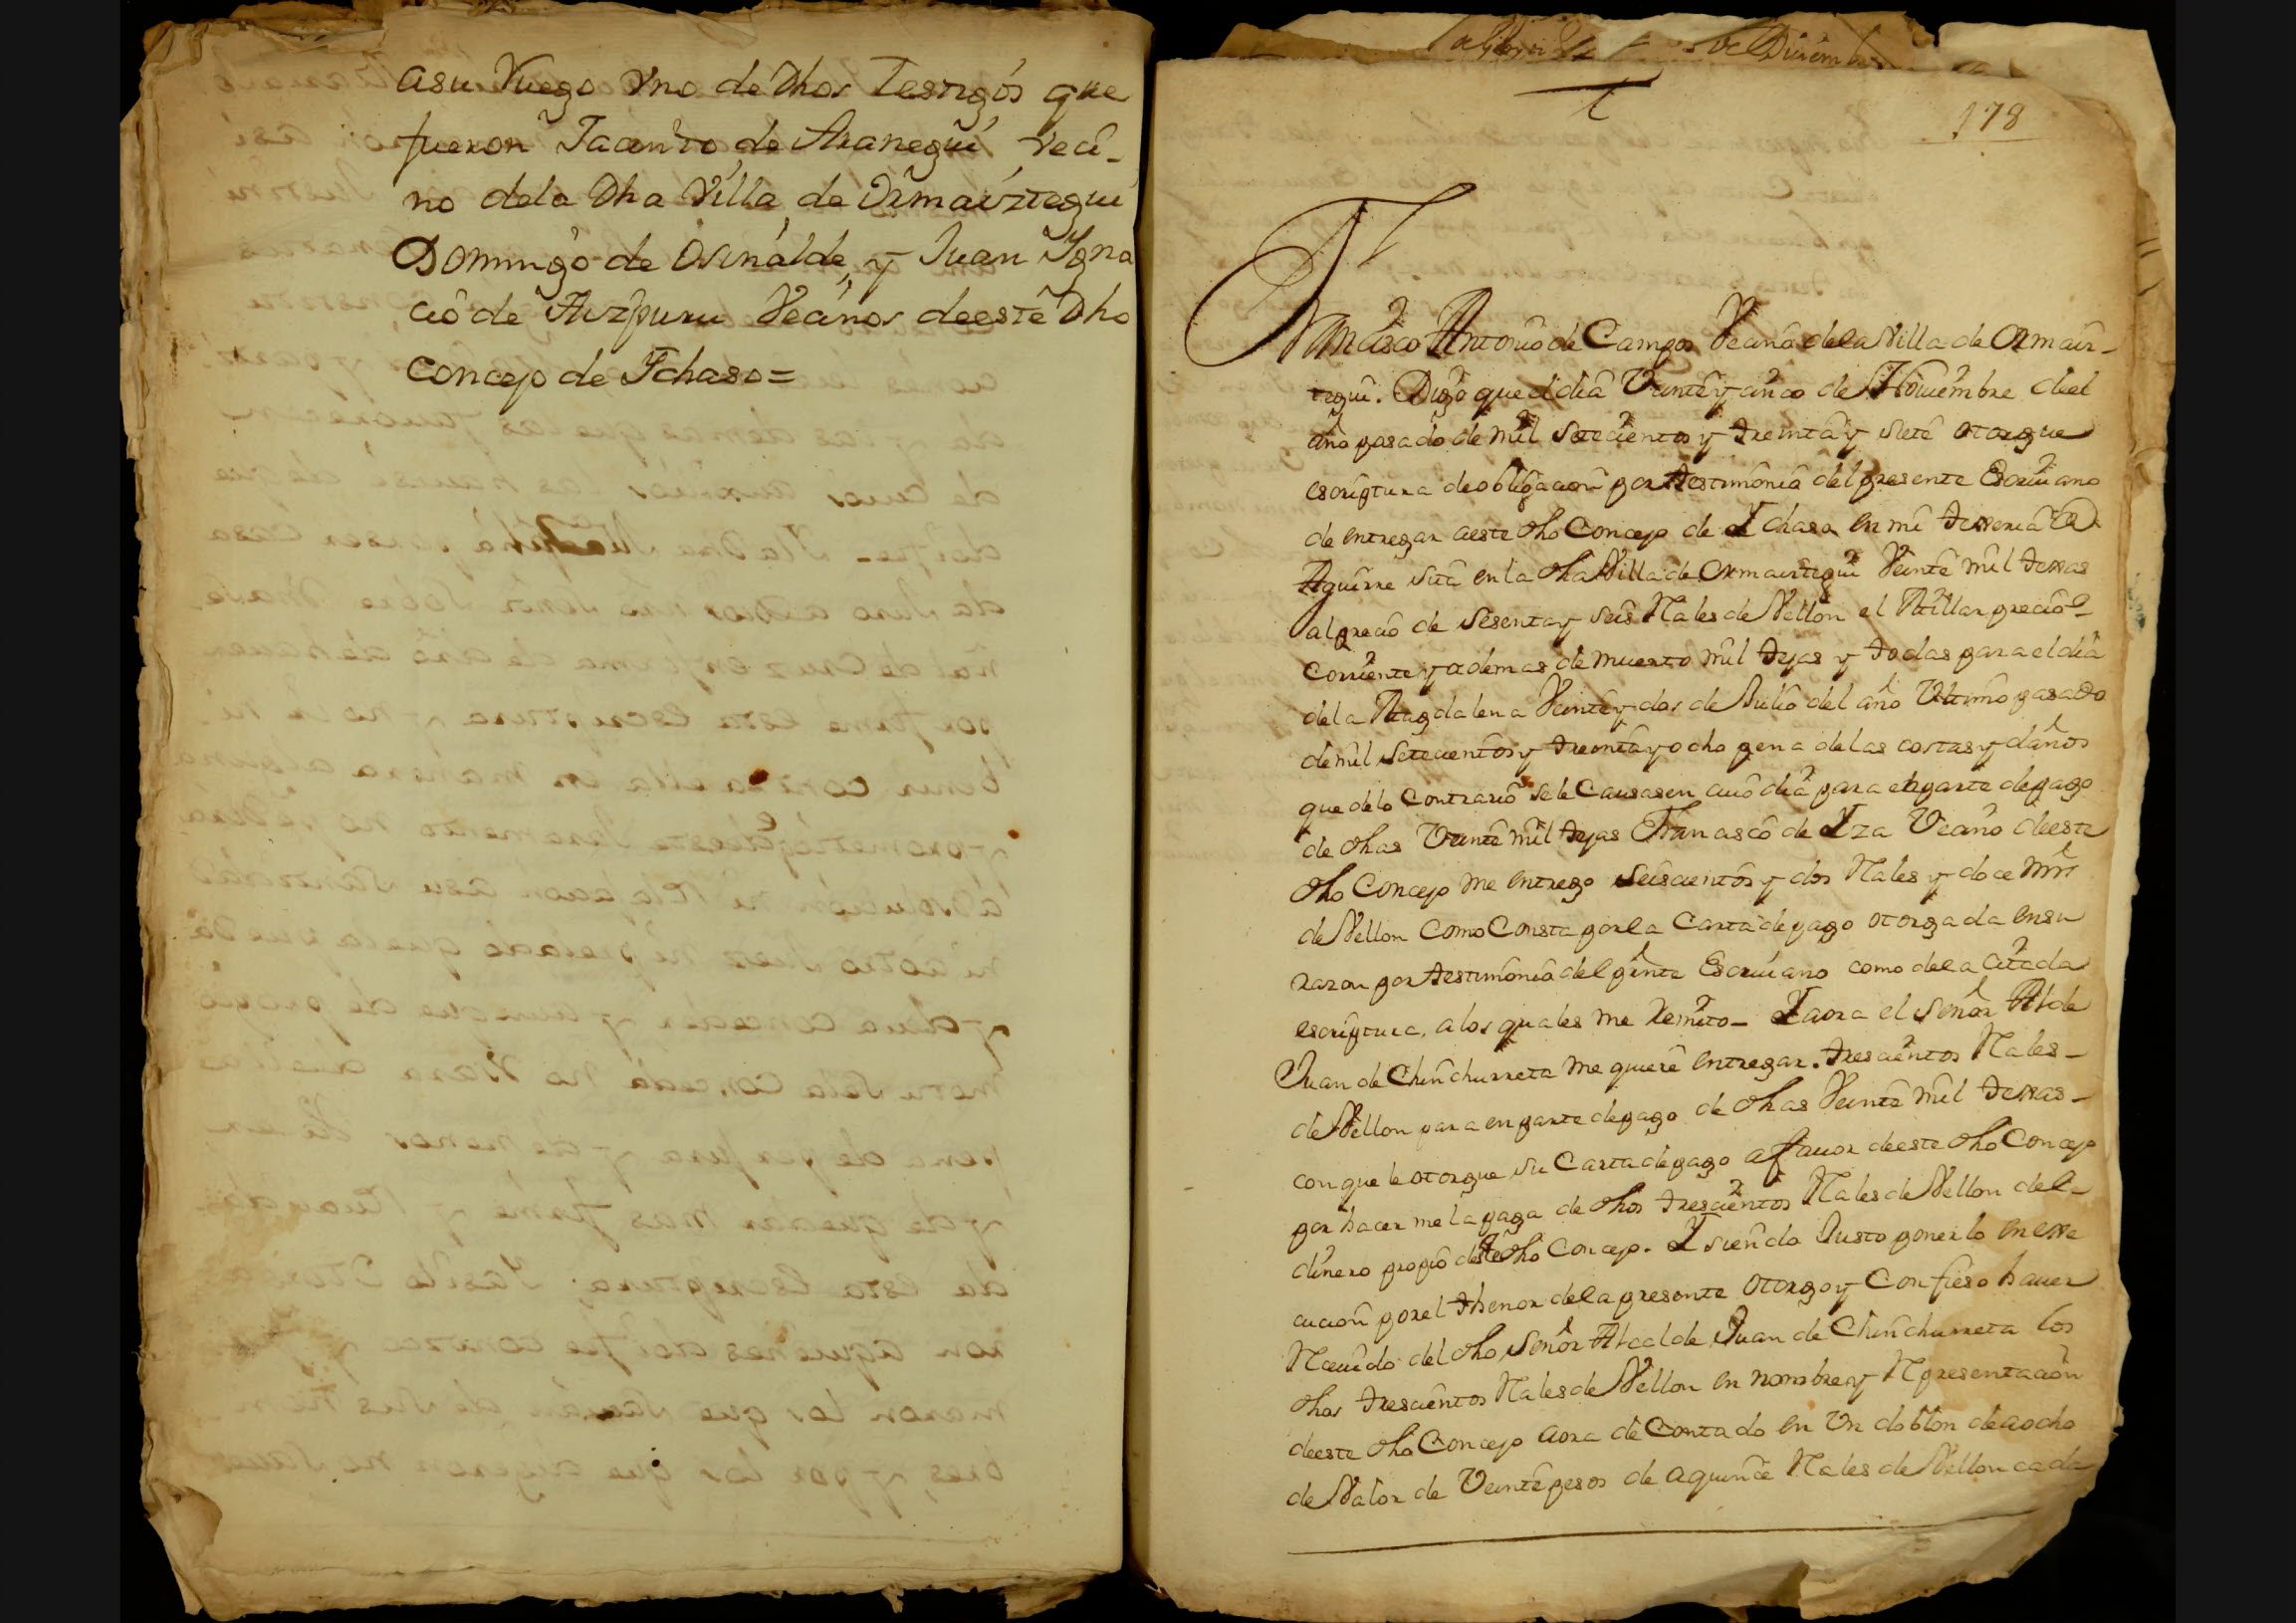 asu Ruego Vno de Dhos Testigòs que
fueron Jacinto de Aranegui veci-
no dela Dha Villa de Ormaiztegui
Domingo de Osinalde, y Juan Igna
cio de Aizpuru Vecinos deeste Dho
Concejo de Ichaso=
de Diziem
178
Francisco Antonio de Campos Vecino dela Villa de Ormaiz-
tegui. Digo que el dia Veinte y cinco de Nouiembre del
año pasado de mil Setecientos y treinta y siete otorgue
escriptura deobligacion por testimonio del presente Escriuano
de entregar aeste dho Concejo de Ichaso en mi texeria de
Aguirre sita en la dha Villa de Ormaiztegui Veinte mil texas
al precio de sesenta y seis Rales de Vellon el Millar precio
Corriente y ademas de muerto mil tejas y todas para el dia
dela Magdalena Veinte y dos de Julio del año Vltimo pasado
demil setecientos y treinta y ocho pena delas costas y daños
que delo Contrario sele Causasen cuio dia para en parte depago
de dhas Veinte mil tejas Francisco de Iza Vecino deeste
dho Concejo me entrego seiscientos y dos Rales y doce mrs
de Vellon como Consta por la Carta depago otorgada ensu
razon por testimonio del pnte Escriuano como dela citada
escriptura, a los quales me Remito- Iaora el señor Alde
Juan de Chinchurreta me quiere entregar. trescientos Rales-
de Vellon para en parte depago de dhas Veinte mil texas-
conque le otorgue su Carta depago afauor deeste dho Concejo
por hacer me la paga de dhos trescientos Rales de Vellon del-
dinero propio deeste dho Concejo. I siendo Justo ponerlo en exe
cucion por el thenor dela presente otorgo y Confieso hauer
Reciuido del dho señor Alcalde Juan de Chinchurreta los
dhos trescientos Rales de Vellon en nombre y Representacion
deeste dho Concejo aora de Contado en Vn doblon deaocho
de Valor de Veinte pesos de aquince Rales de Vellon cada